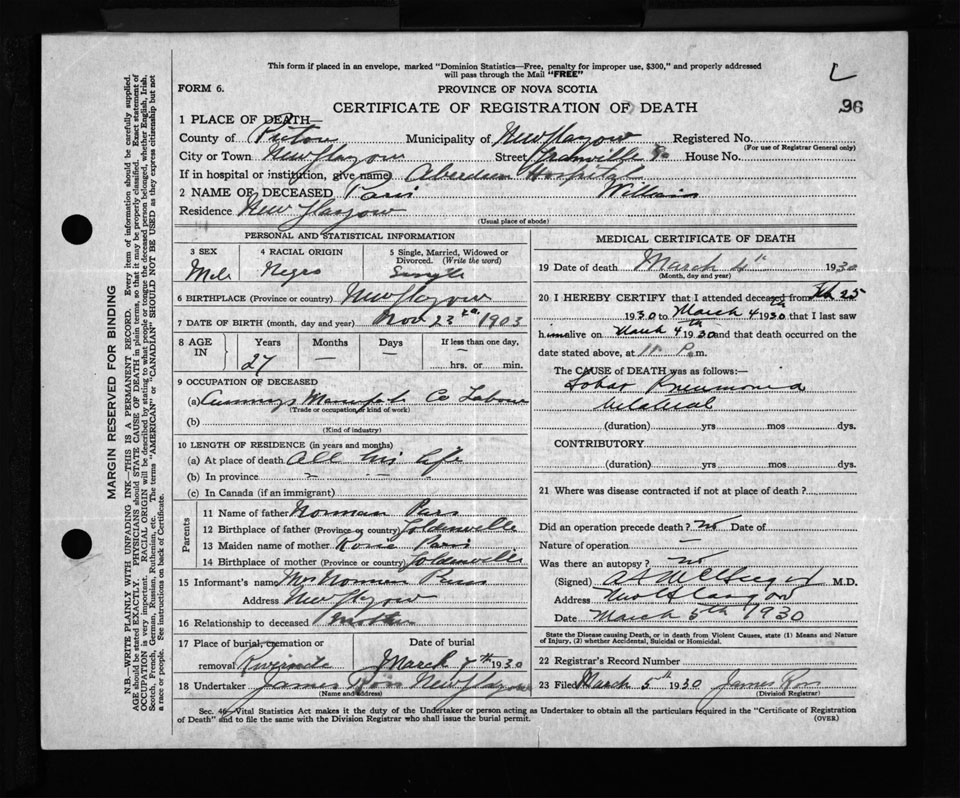 This form if placed in an envelope, marked "Dominion Statistics—Free, penalty for improper use, $300," and properly addressed
will pass through the Mail "FREE"
L
FORM 6.
PROVINCE OF NOVA SCOTIA
CERTIFICATE OF REGISTRATION OF DEATH
96
1 PLACE OF DEATH—
County of Pictou Municipality of New Glasgow Registered No.
(For use of Registrar General only)
City or Town New Glasgow Street Granville House No.
If in hospital or institution, give name) Aberdeen Hospital
2 NAME OF DECEASED Paris William
Residence New Glasgow
(Usual place of abode)
PERSONAL AND STATISTICAL INFORMATION
3 SEX 4 RACIAL ORIGIN 5 Single, Married, Widowed or
Divorced. (Write the word)
Male Negro Single
6 BIRTHPLACE (Province or country) New Glasgow
7 DATE OF BIRTH (month, day and year) Nov 23rd 1903
8 AGE IN Years Months Days If less than one day,
27 — — — hrs. or min.
9 OCCUPATION OF DECEASED
(a) Manufact Co Labour
(Trade or occupation or kind of work)
(b)
(Kind of industry)
10 LENGTH OF RESIDENCE (in years and months)
(a) At place of death All his life
(b) In province — — —
(c) In Canada (if an immigrant)
Parents
11 Name of father Norman Paris
12 Birthplace of father (Province or country) Goldenville
13 Maiden name of mother Rosie Paris
14 Birthplace of mother (Province or country) Goldenville
15 Informant's name Mrs Norman Paris
Address New Glasgow
16 Relationship to deceased Mother
17 Place of burial, cremation or Date of burial
removal Riverside March 7th 1930
18 Undertaker James Ross New Glasgow
(Name and address)
MEDICAL CERTIFICATE OF DEATH
19 Date of death March 4th 1930
(Month, day and year)
20 I HEREBY CERTIFY that I attended deceased from Feb 25
1930 to March 4th 1930 that I last saw
him alive on March 4th 1930 and that death occurred on the
date stated above, at 11 P.m.
The CAUSE of DEATH was as follows:—
Lobar Pneumonia
bilateral
(duration) yrs mos dys.
CONTRIBUTORY
(duration) yrs mos dys.
21 Where was disease contracted if not at place of death?
Did an operation precede death? no Date of
Nature of operation —
Was there an autopsy? no
(Signed) M.D.
Address New Glasgow
Date March 5th 1930
State the Disease causing Death, or in death from Violent Causes, state (1) Means and Nature
of Injury, (2) whether Accidental, Suicidal or Homicidal.
22 Registrar's Record Number
23 Filed March 5th 1930 James Ross
(Division Registrar)
Sec. 46—Vital Statistics Act makes it the duty of the Undertaker or person acting as Undertaker to obtain all the particulars required in the "Certificate of Registration
of Death" and to file the same with the Division Registrar who shall issue the burial permit.
(OVER)
MARGIN RESERVED FOR BINDING
N.B.—WRITE PLAINLY WITH UNFADING INK—THIS IS A PERMANENT RECORD. Every item of information should be carefully supplied.
AGE should be stated EXACTLY. PHYSICIANS should STATE CAUSE OF DEATH in plain terms, so that it may be properly classified. Exact statement of
OCCUPATION is very important. RACIAL ORIGIN will be described by stating to what people or tongue the deceased person belonged, whether English, Irish,
Scotch, French, German, Russian, Ruthenian, etc. The terms "AMERICAN" or "CANADIAN" SHOULD NOT BE USED as they express citizenship but not
a race or people. See instructions on back of Certificate.